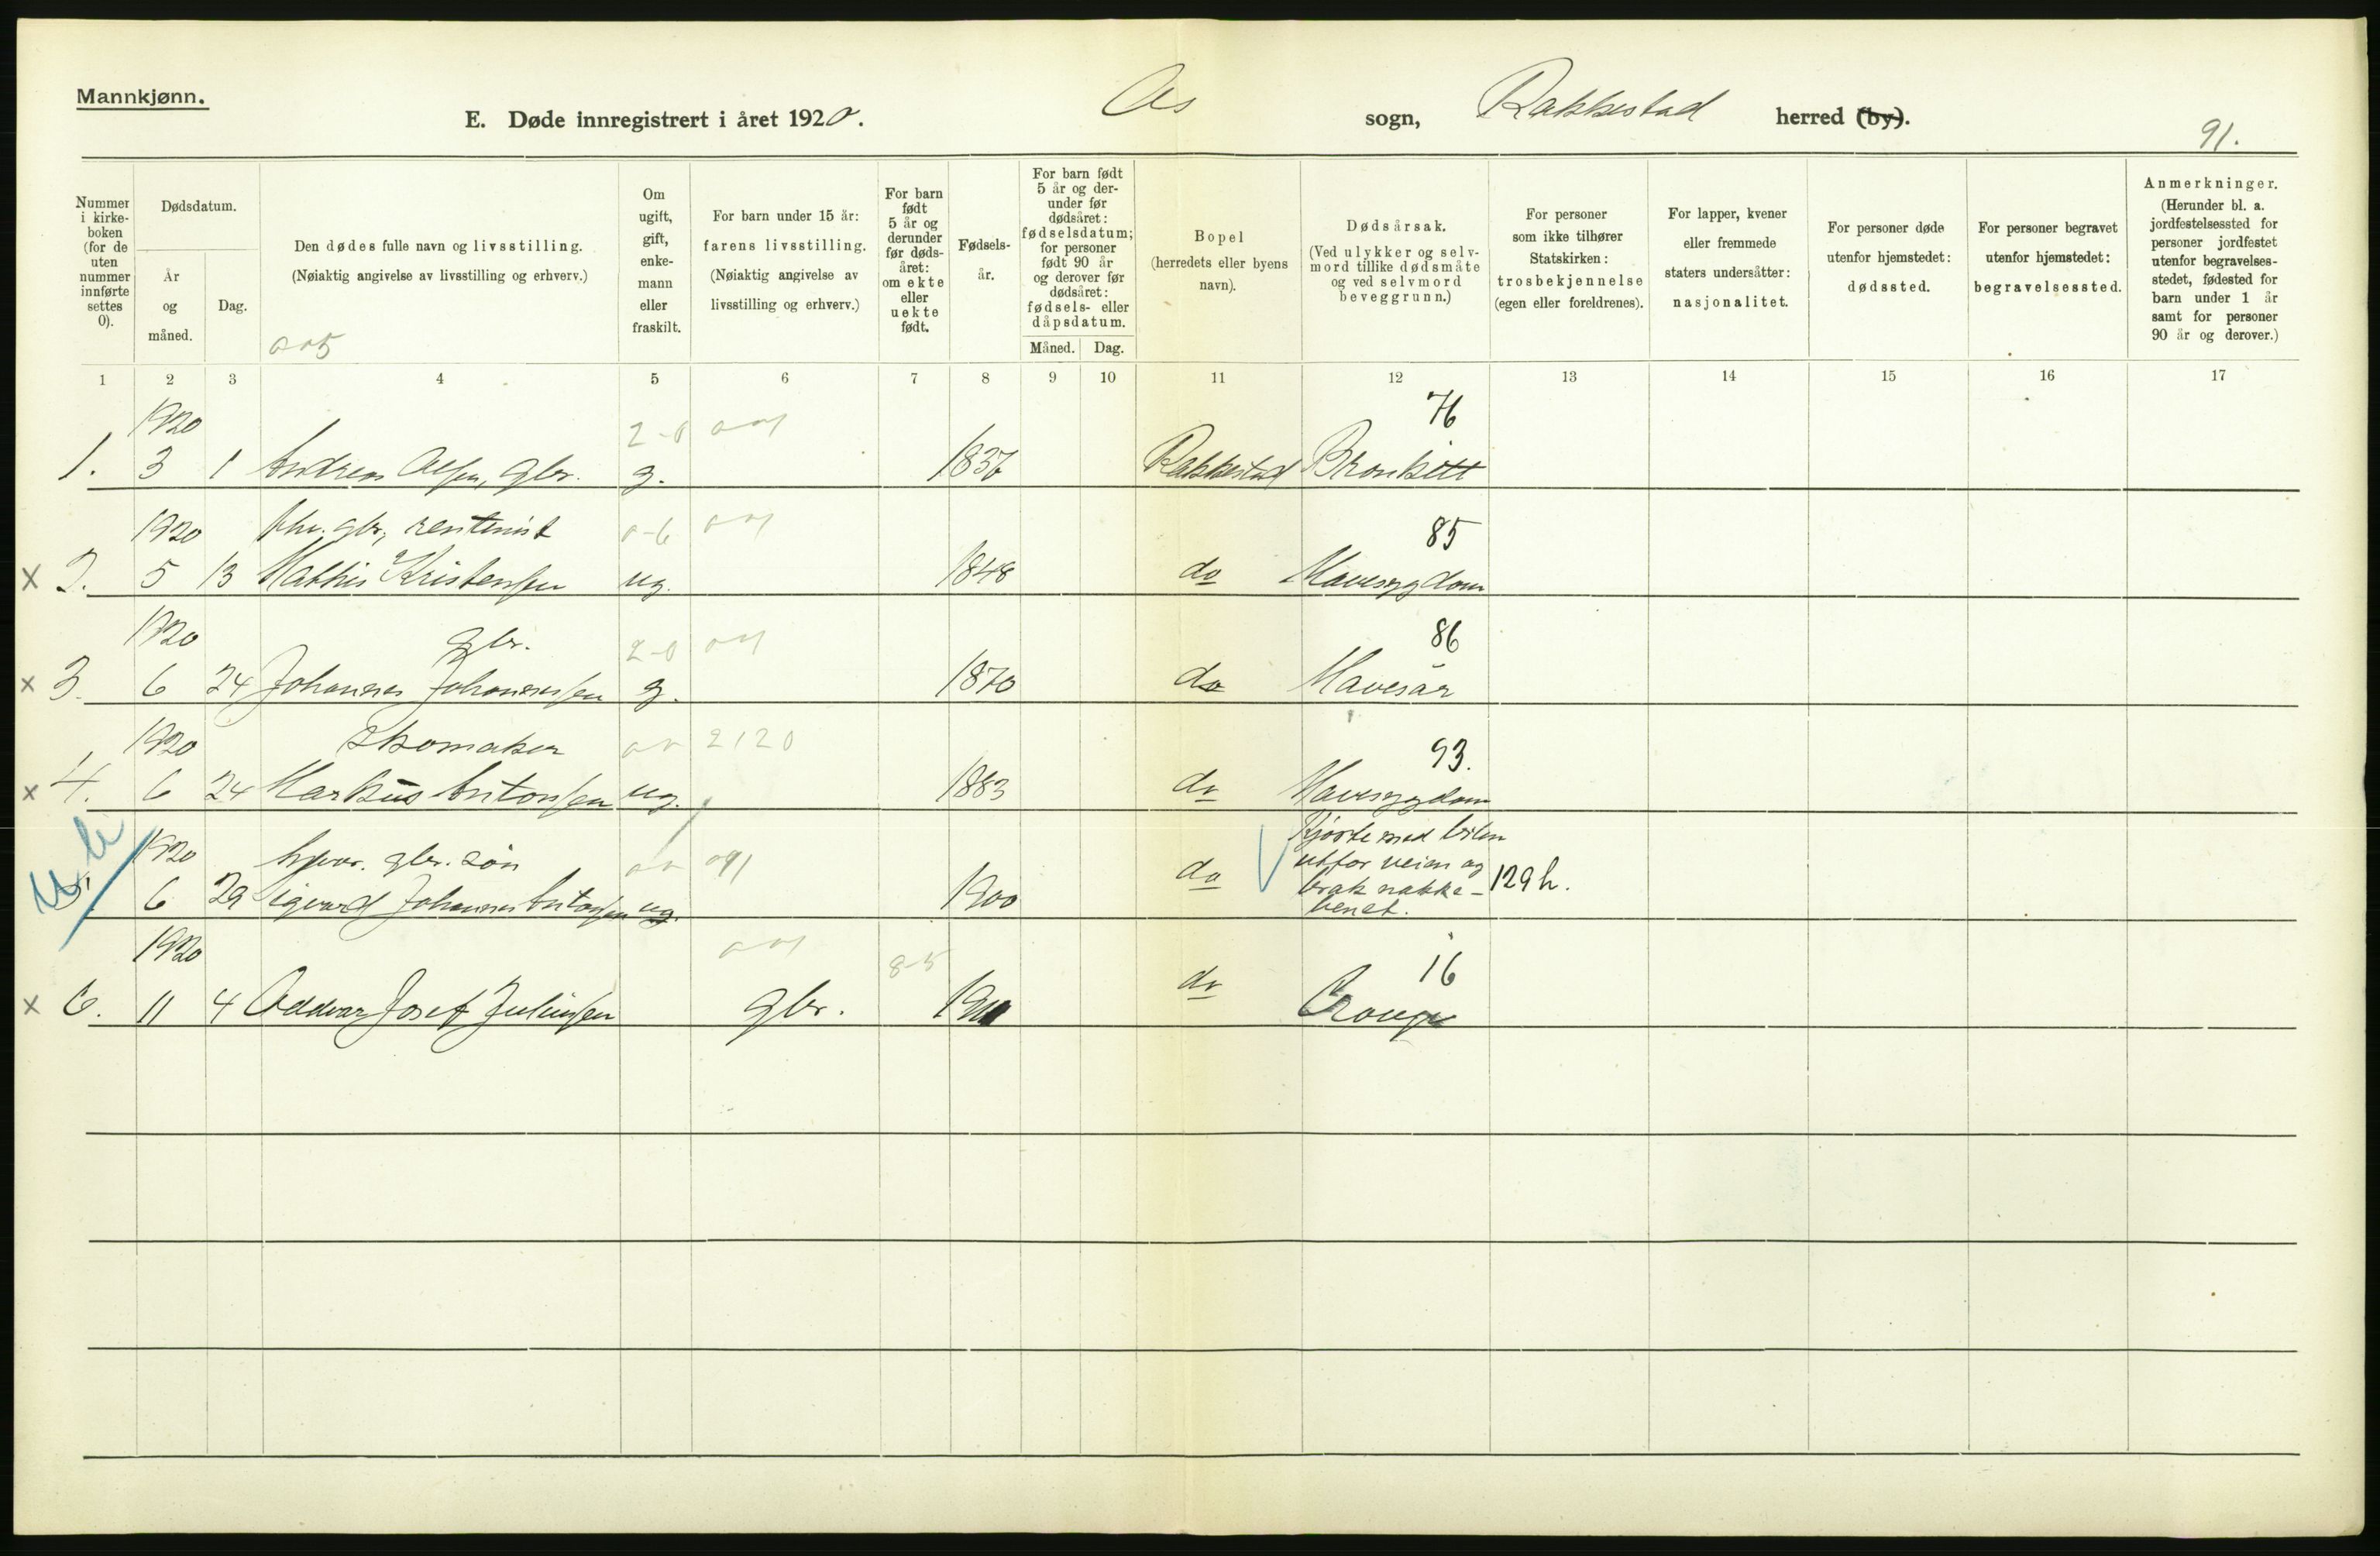 Mannkjønn.
E. Døde innregistrert i året 1920.
Os sogn, Rakkestad herred (by).
91.
Nummer i kirke-boken (for de uten nummer innførte settes 0).
Dødsdatum.
År og måned.
Dag.
Den dødes fulle navn og livsstilling.
(Nøiaktig angivelse av livsstilling og erhverv.)
Om ugift, gift, enke-mann eller fraskilt.
For barn under 15 år: farens livsstilling.
(Nøiaktig angivelse av livsstilling og erhverv.)
For barn født 5 år og derunder før døds-året: om ekte eller uekte født.
Fødsels-år.
For barn født 5 år og der-under før dødsåret: fødselsdatum; for personer født 90 år og derover før dødsåret: fødsels- eller dåpsdatum.
Måned. Dag.
Bopel (herredets eller byens navn).
Dødsårsak.
(Ved ulykker og selv-mord tillike dødsmåte og ved selvmord beveggrunn.)
For personer som ikke tilhører Statskirken: trosbekjennelse (egen eller foreldrenes).
For lapper, kvener eller fremmede staters undersåtter: nasjonalitet.
For personer døde utenfor hjemstedet: dødssted.
For personer begravet utenfor hjemstedet: begravelsessted.
Anmerkninger.
(Herunder bl. a. jordfestelsessted for personer jordfestet utenfor begravelses-stedet, fødested for barn under 1 år samt for personer 90 år og derover.)
1 2 3 4 5 6 7 8 9 10 11 12 13 14 15 16 17
1920 2-0 76
1. 3 1 Andreas Olsen, gbr. g. 1836 Rakkestad Bronkitt
1920 fhv. gbr, rentenist 0-6 85
x 2. 5 13 Mathis Kristensen ug. 1848 do Mavesygdom
1920 gbr. 2-0 86
x 3. 6 24 Johannes Johannessen g. 1870 do Mavesår
1920 Skomaker 2120 93.
x 4. 6 24 Markus Antonsen ug. 1883 do Mavesygdom
1920 gbr. søn
5. 6 29 Sigvard Johannes Antonsen ug. 1900 do Kjørte med bilen utfor veien og brak nakke-benet. 129 h.
1920 8-5 16
x 6. 11 4 Oddvar Josef Juliussen gbr. do Croup